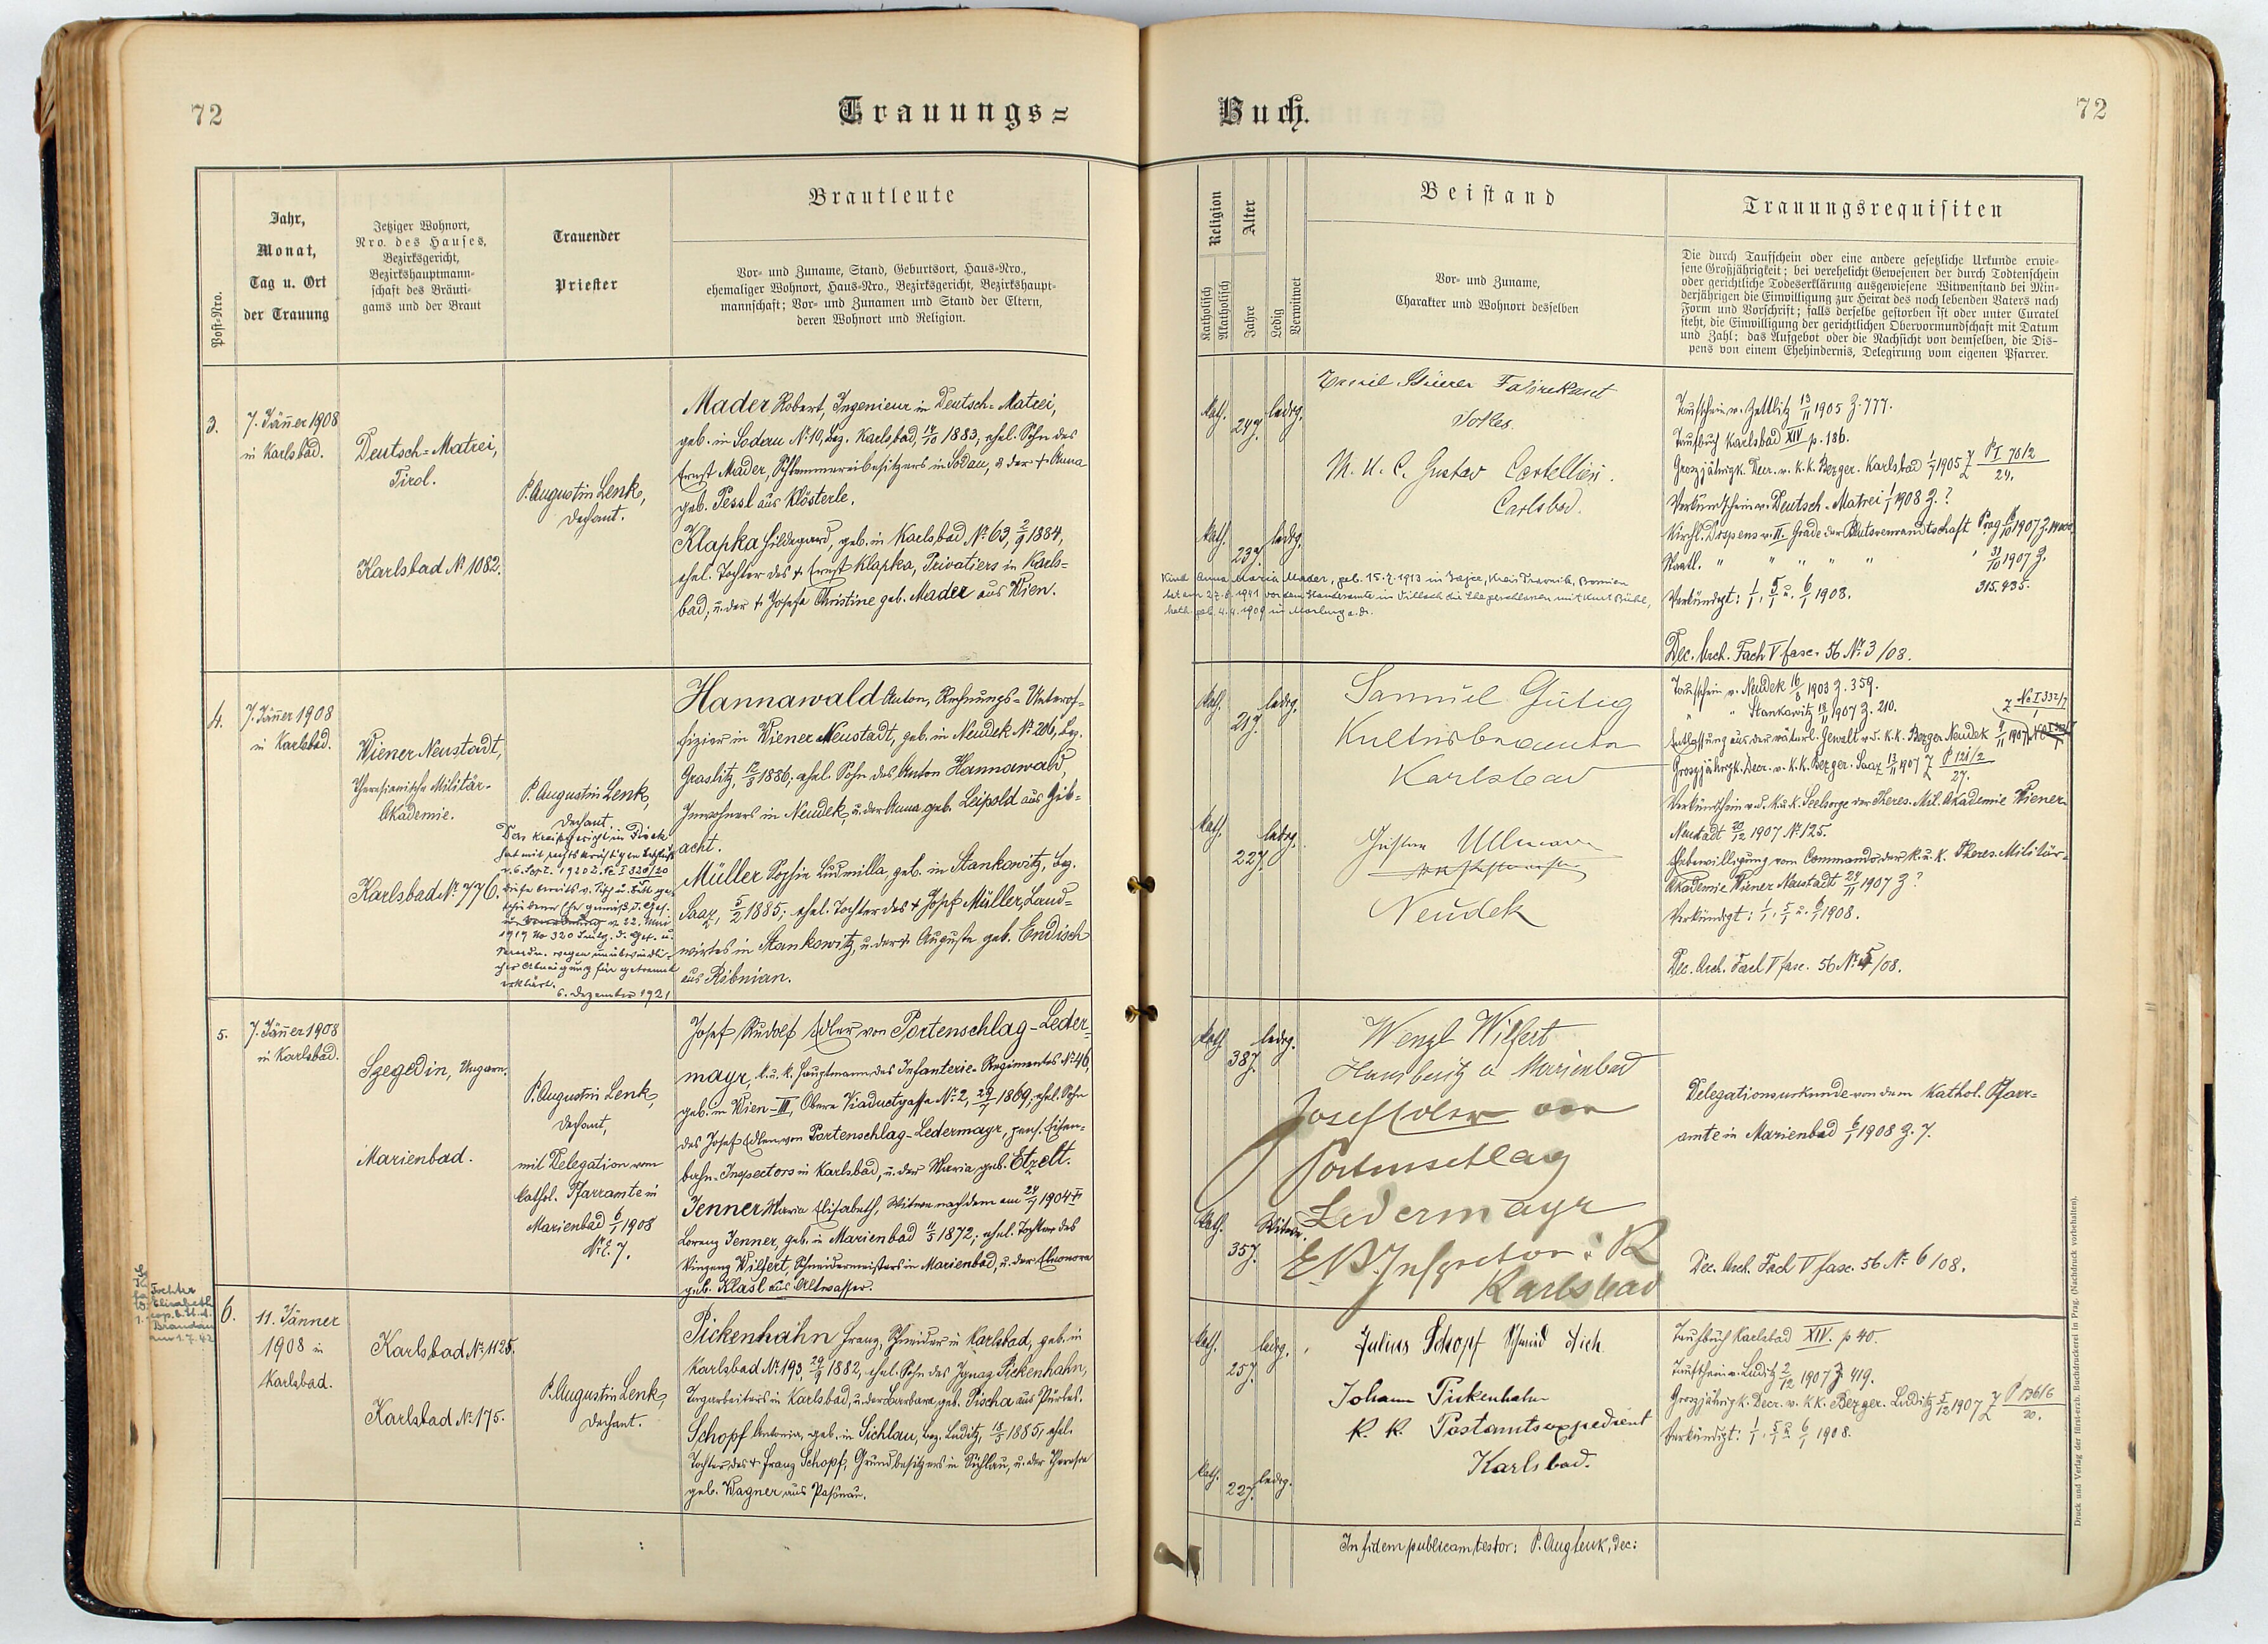 72
Trauungs=
Buch.
72
Post=Nro.
Jahr,
Monat,
Tag u. Ort
der Trauung
Jetziger Wohnort,
Nro. des Hauses,
Bezirksgericht,
Bezirkshauptmann=
schaft des Bräuti=
gams und der Braut
Trauender
Priester
Brautleute
Vor= und Zuname, Stand, Geburtsort, Haus=Nro.,
ehemaliger Wohnort, Haus=Nro., Bezirksgericht, Bezirkshaupt=
mannschaft; Vor= und Zunamen und Stand der Eltern,
deren Wohnort und Religion.
Religion
Katholisch
Akatholisch
Alter
Jahre
Ledig
Verwitwet
Beistand
Vor= und Zuname,
Charakter und Wohnort desselben
Trauungsrequisiten
Die durch Taufschein oder eine andere gesetzliche Urkunde erwie=
sene Großjährigkeit; bei verehelicht Gewesenen der durch Todtenschein
oder gerichtliche Todeserklärung ausgewiesene Witwenstand bei Min=
derjährigen die Einwilligung zur Heirat des noch lebenden Vaters nach
Form und Vorschrift; falls derselbe gestorben ist oder unter Curatel
steht, die Einwilligung der gerichtlichen Obervormundschaft mit Datum
und Zahl; das Aufgebot oder die Nachsicht von demselben, die Dis=
pens von einem Ehehindernis, Delegirung vom eigenen Pfarrer.
3.
7. Jänner 1908
in Karlsbad.
Deutsch=Matrei,
Tirol.
Karlsbad № 1082.
P. Augustin Lenk,
Dechant.
Mader Robert, Ingenieur in Deutsch=Matrei,
geb. in Sodau № 10, Bez. Karlsbad, 14/10 1883, ehel. Sohn des
Ernst Mader, Schlemmereibesitzers in Sodau, u der + Anna
geb. Pessl aus Klösterle.
Klapka Hildegard, geb. in Karlsbad № 63, 2/9 1884,
ehel. Tochter des + Ernst Klapka, Privatiers in Karls=
bad, u. der + Josefa Christine geb. Mader aus Wien.
kath.
24 J.
ledig.
kath.
23 J.
ledig.
Fabrikant
M. U. C. Gustav Cartellieri.
Carlsbad.
Kind Anna Maria Mader, geb. 15.7.1913 in Jajce, Kreis Travnik, Bosnien
hat am 27.6.1941 vor dem Standesamte in Villach die Ehe geschlossen mit Kurt Bühl,
kath. geb. 4.4.1909 in Marburg a. Dr.
Taufschein v. Zettlitz 13/11 1905 Z. 777.
Taufbuch Karlsbad XIV p. 186.
Groszjährigk. Decr. v. k. k. Bezger. Karlsbad 1/7 1905 Z P I 78/2 / 24.
Verkündschein v. Deutsch-Matrei 1/1 1908 Z. ?
Kirchl. Dispens v. II. Grade der Blutsverwandtschaft Prag
Staatl. " " " " " 31/10 1907 Z.
315.435.
Verkündigt: 1/1, 5/1 u. 6/1 1908.
Dec. Arch. Fach V fasc. 56 № 3/08.
4.
7. Jänner 1908
in Karlsbad.
Wiener Neustadt,
Theresianische Militär-
Akademie.
Karlsbad № 776.
P. Augustin Lenk,
Dechant.
hat mit rechtskräftigem
v. 6. Sept. 1920
1919 No 320
wegen unüberwindli-
cher Abneigung für getrennt
erklärt.
6. Dezember 1921
Hannawald Anton, Rechnungs=Unterof=
fizier in Wiener Neustadt, geb. in Neudek № 206, Bez.
Graslitz, 12/3 1886, ehel. Sohn des Anton Hannawald,
Inwohners in Neudek, u. der Anna geb. Leipold aus Gib=
acht.
Müller Sophie Ludmilla, geb. in Stankowitz, Bez.
Saaz, 5/2 1885, ehel. Tochter des + Josef Müller, Land=
wirtes in Stankowitz, u. der + Auguste geb. Endisch
aus Ribnian.
kath.
21 J.
ledig.
kath.
22 J.
ledig.
Samuel Gütig
Kultusbeamter
Karlsbad
Gustav Ullmann
Neudek
Taufschein v. Neudek 16/8 1903 Z. 359.
" " Stankowitz 18/11 1907 Z. 210.
Entlassung aus der väterl. Gewalt v. k. k. Bezger Neudek 9/11 1907 Z No I 332/7 / 1
Groszjährigk. Decr. v. k. k. Bezger. Saaz 13/11 1907 Z P 121/2 / 27.
Verkündschein v. d. k. u. k. Seelsorge der Theres. Mil. Akademie Wiener-
Neustadt 20/12 1907 № 125.
Ehebewilligung vom Commando der k. u. k. Theres. Militär-
Akademie Wiener Neustadt 24/11 1907 Z ?
Verkündigt: 1/1, 5/1 u. 6/1 1908.
Dec. Arch. Fach V fasc. 56 № 5/08.
5.
7. Jänner 1908
in Karlsbad.
Szegedin, Ungarn.
Marienbad.
P. Augustin Lenk,
Dechant,
mit Delegation vom
kathol. Pfarramte in
Marienbad 6/1 1908
№ E. 7.
Josef Rudolf Edler von Portenschlag-Leder=
mayr, k. u. k. Hauptmann des Infanterie-Regimentes № 46,
geb. in Wien-III, Obere Viaductgasse № 2, 29/7 1869, ehel. Sohn
des Josef Edlen von Portenschlag-Ledermayr, pens. Eisen=
bahn-Inspectors in Karlsbad, u. der Maria geb. Etzelt.
Jenner Maria Elisabeth, Witwe nach dem am 24/7 1904 +
Lorenz Jenner, geb. in Marienbad 11/5 1872, ehel. Tochter des
Vinzenz Wilfert, Schneidermeisters in Marienbad, u. der Eleonora
geb. Klasl aus Altwasser.
kath.
38 J.
ledig.
kath.
35 J.
Witwe.
Wenzl Wilfert
Hausbesitz a Marienbad
Josef Edler von
Portenschlag
Ledermayr
E B Inspector i R
Karlsbad
Delegationsurkunde von dem kathol. Pfarr=
amte in Marienbad 6/1 1908 Z. 7.
Dec. Arch. Fach V fasc. 56 № 6/08.
Tochter
Elisabeth
Brandau
am 1.7.42
6.
11. Jänner
1908 in
Karlsbad.
Karlsbad № 1125.
Karlsbad № 175.
P. Augustin Lenk,
Dechant.
Pickenhahn Franz, Schneider in Karlsbad, geb. in
Karlsbad № 193, 29/9 1882, ehel. Sohn des Ignaz Pickenhahn,
Tagarbeiters in Karlsbad, u. der Barbara, geb. Pischa aus Pürles.
Schopf Antonia, geb. in Sichlau, Bez. Luditz, 18/5 1885, ehel.
Tochter des + Franz Schopf, Grundbesitzers in Sichlau, u. der Theresia
geb. Wagner aus Passnau.
kath.
25 J.
ledig.
kath.
22 J.
ledig.
Julius Schopf Schmied Aich
Johann Pickenhahn
k. k. Postamtsexpedient
Karlsbad.
Taufbuch Karlsbad XIV. p 40.
Taufschein v. Luditz 2/12 1907 Z 419.
Groszjährigk. Decr. v. k k. Bezger. Luditz 5/12 1907 Z P 136/6 / 20.
Verkündigt: 1/1, 5/1 u 6/1 1908.
In fidem publicam testor: P. Aug Lenk, Dec:
Druck und Verlag der fürst-erzb. Buchdruckerei in Prag. (Nachdruck vorbehalten).